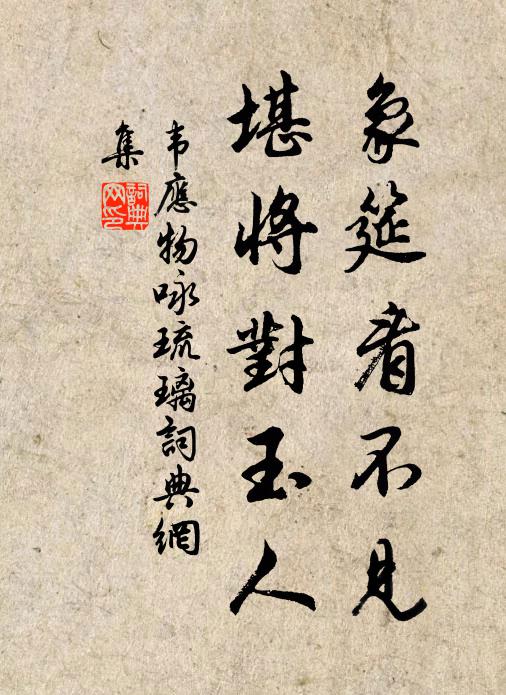 象筵看不見
堪將對玉人
韦應物咏琉璃詞典網
集
詞典
网印